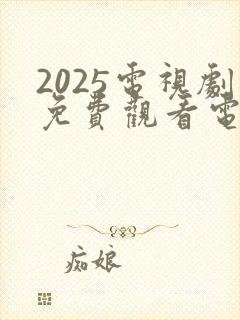 2025電視劇
免費觀看電
痴娘